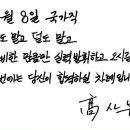 월 8일 국가직
도 말고 덜도 말고
비한 만큼만 실력발휘하고 오시길
번에는 당신이 합격하실 차례입니
高 시